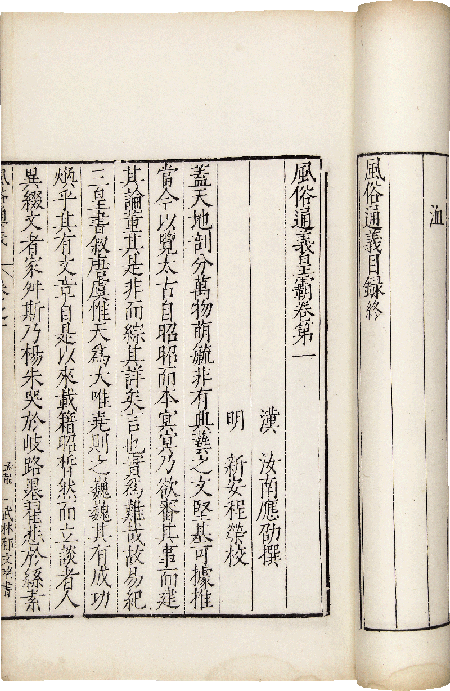 洫
風俗通義目録終
風俗通義皇霸卷第一
漢 汝南應劭撰
明 新安程榮校
蓋天地剖分萬物萌毓非有典藝之文堅基可據推
當今以覽太古自昭昭而本冥冥乃欲審其事而建
其論董其是非而綜其詳矣言也實爲難哉故易紀
三皇書叙唐虞惟天爲大唯堯則之巍巍其有成功
煥乎其有文章自是以來載籍昭晳然而立談者人
異綴文者家舛斯乃楊朱哭於岐路墨翟悲於絲素
風俗通義 卷之一
武林郁文瑞書